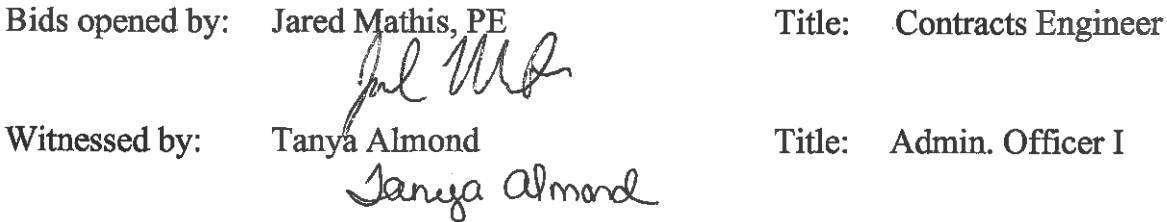 Bids opened by: Jared Mathis, PE Title: Contracts Engineer
Witnessed by: Tanya Almond Title: Admin. Officer I
Tanya Almond